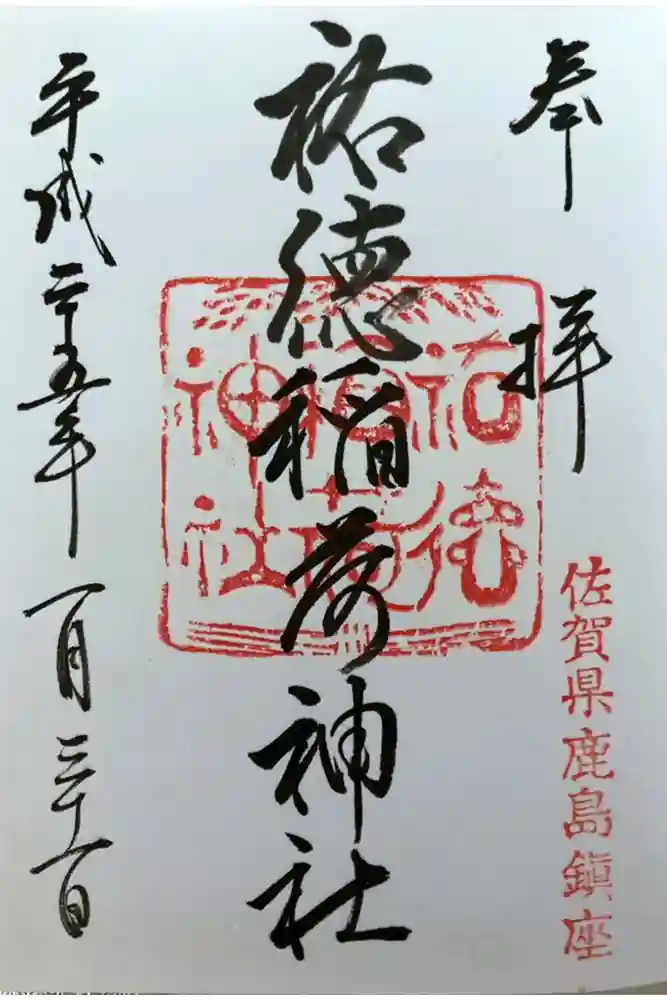 奉拝
佐賀県鹿島鎮座
祐徳稲荷神社
祐徳
稲荷
神社
平成二十五年一月三十一日